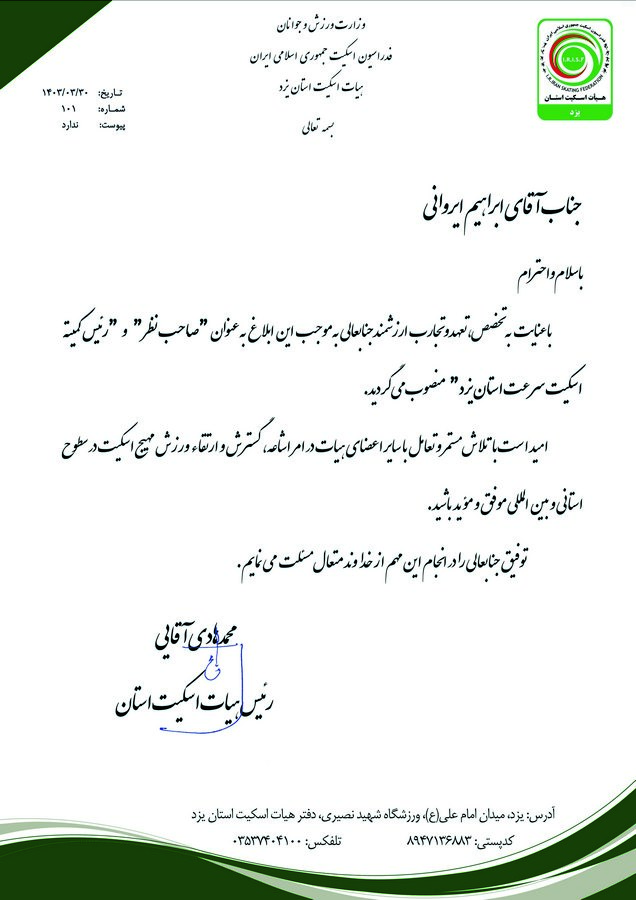 وزارت ورزش و جوانان
فدراسیون اسکیت جمهوری اسلامی ایران
هیات اسکیت استان یزد
بسمه تعالی
تاریخ: ۱۴۰۳/۰۳/۳۰
شماره: ۱۰۱
پیوست: ندارد
I.R.I.S.F
I.R.IRAN SKATING FEDERATION
هیأت اسکیت استان
یزد
جناب آقای ابراهیم ایروانی
با سلام و احترام
با عنایت به تخصص، تعهد و تجارب ارزشمند جنابعالی به موجب این ابلاغ به عنوان "صاحب نظر" و "رئیس کمیته
اسکیت سرعت استان یزد" منصوب می گردید.
امید است با تلاش مستمر و تعامل با سایر اعضای هیات در امر اشاعه، گسترش و ارتقاء ورزش مهیج اسکیت در سطوح
استانی و بین المللی موفق و مؤید باشید.
توفیق جنابعالی را در انجام این مهم از خداوند متعال مسئلت می نمایم.
محمدهادی آقایی
رئیس هیات اسکیت استان
آدرس: یزد، میدان امام علی(ع)، ورزشگاه شهید نصیری، دفتر هیات اسکیت استان یزد
کدپستی: ۸۹۴۷۱۳۶۸۸۳ تلفکس: ۰۳۵۳۷۴۰۴۱۰۰